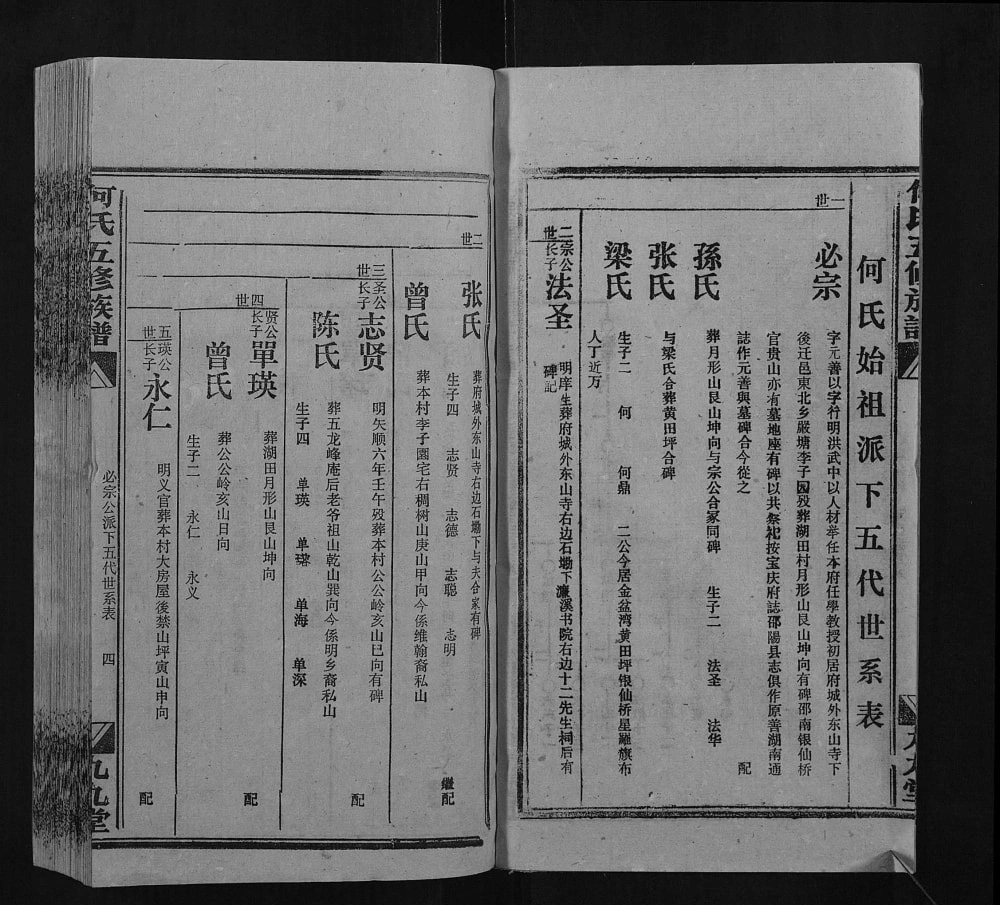 何氏始祖派下五代世系表
一世
必宗
字元善以字符明洪武中以人材举任本府任學教授初居府城外东山寺下
後迁邑東北乡嚴塘李子园殁葬湖田村月形山艮山坤向有碑邵南银仙桥
官贵山亦有墓地座有碑以共祭祀按宝庆府誌邵陽县志俱作原善湖南通
誌作元善與墓碑合今從之
配
孫氏
葬月形山艮山坤向与宗公合冢同碑 生子二 法圣 法华
张氏
与梁氏合葬黄田坪合碑
梁氏
生子二 何 何鼎 二公今居金盆湾黄田坪银仙桥星濉旗布
人丁近万
二世
宗公长子
法圣
明庠生葬府城外东山寺右边石墈下濂溪书院右边十二先生祠后有
碑记
何氏五修族譜
九九堂
二世
张氏
葬府城外东山寺右边石墈下与夫合家有碑
生子四 志贤 志德 志聪 志明
继配
曾氏
葬本村李子園宅右椆树山庚山甲向今係维翰裔私山
三世
圣公长子
志贤
明天顺六年壬午殁葬本村公公岭亥山巳向有碑
配
陈氏
葬五龙峰庵后老爷祖山乾山巽向今係明乡裔私山
生子四 单瑛 单瑃 单海 单深
四世
贤公长子
單瑛
葬湖田月形山艮山坤向
配
曾氏
葬公公岭亥山日向
生子二 永仁 永义
五世
瑛公长子
永仁
明义官葬本村大房屋後禁山坪寅山申向
配
何氏五修族谱
必宗公派下五代世系表
四
九九堂